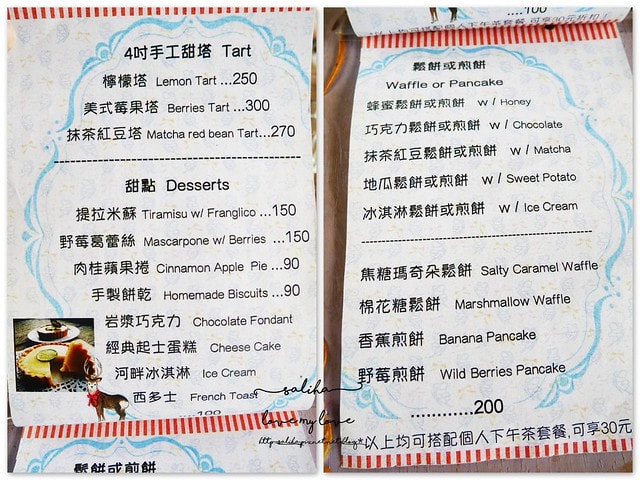 4吋手工甜塔 Tart
檸檬塔 Lemon Tart ...250
美式莓果塔 Berries Tart ...300
抹茶紅豆塔 Matcha red bean Tart...270
甜點 Desserts
提拉米蘇 Tiramisu w/ Franglico ...150
野莓葛蕾絲 Mascarpone w/ Berries ...150
肉桂蘋果捲 Cinnamon Apple Pie ...90
手製餅乾 Homemade Biscuits ...90
岩漿巧克力 Chocolate Fondant
經典起士蛋糕 Cheese Cake
河畔冰淇淋 Ice Cream
西多士 French Toast
saliha
love my love
鬆餅或煎餅
.....100
*以上均可搭配個人下午茶套餐,可享30元折扣
鬆餅或煎餅
Waffle or Pancake
蜂蜜鬆餅或煎餅 w / Honey
巧克力鬆餅或煎餅 w / Chocolate
抹茶紅豆鬆餅或煎餅 w / Matcha
地瓜鬆餅或煎餅 w / Sweet Potato
冰淇淋鬆餅或煎餅 w / Ice Cream
焦糖瑪奇朵鬆餅 Salty Caramel Waffle
棉花糖鬆餅 Marshmallow Waffle
香蕉煎餅 Banana Pancake
野莓煎餅 Wild Berries Pancake
............200
*以上均可搭配個人下午茶套餐,可享30元